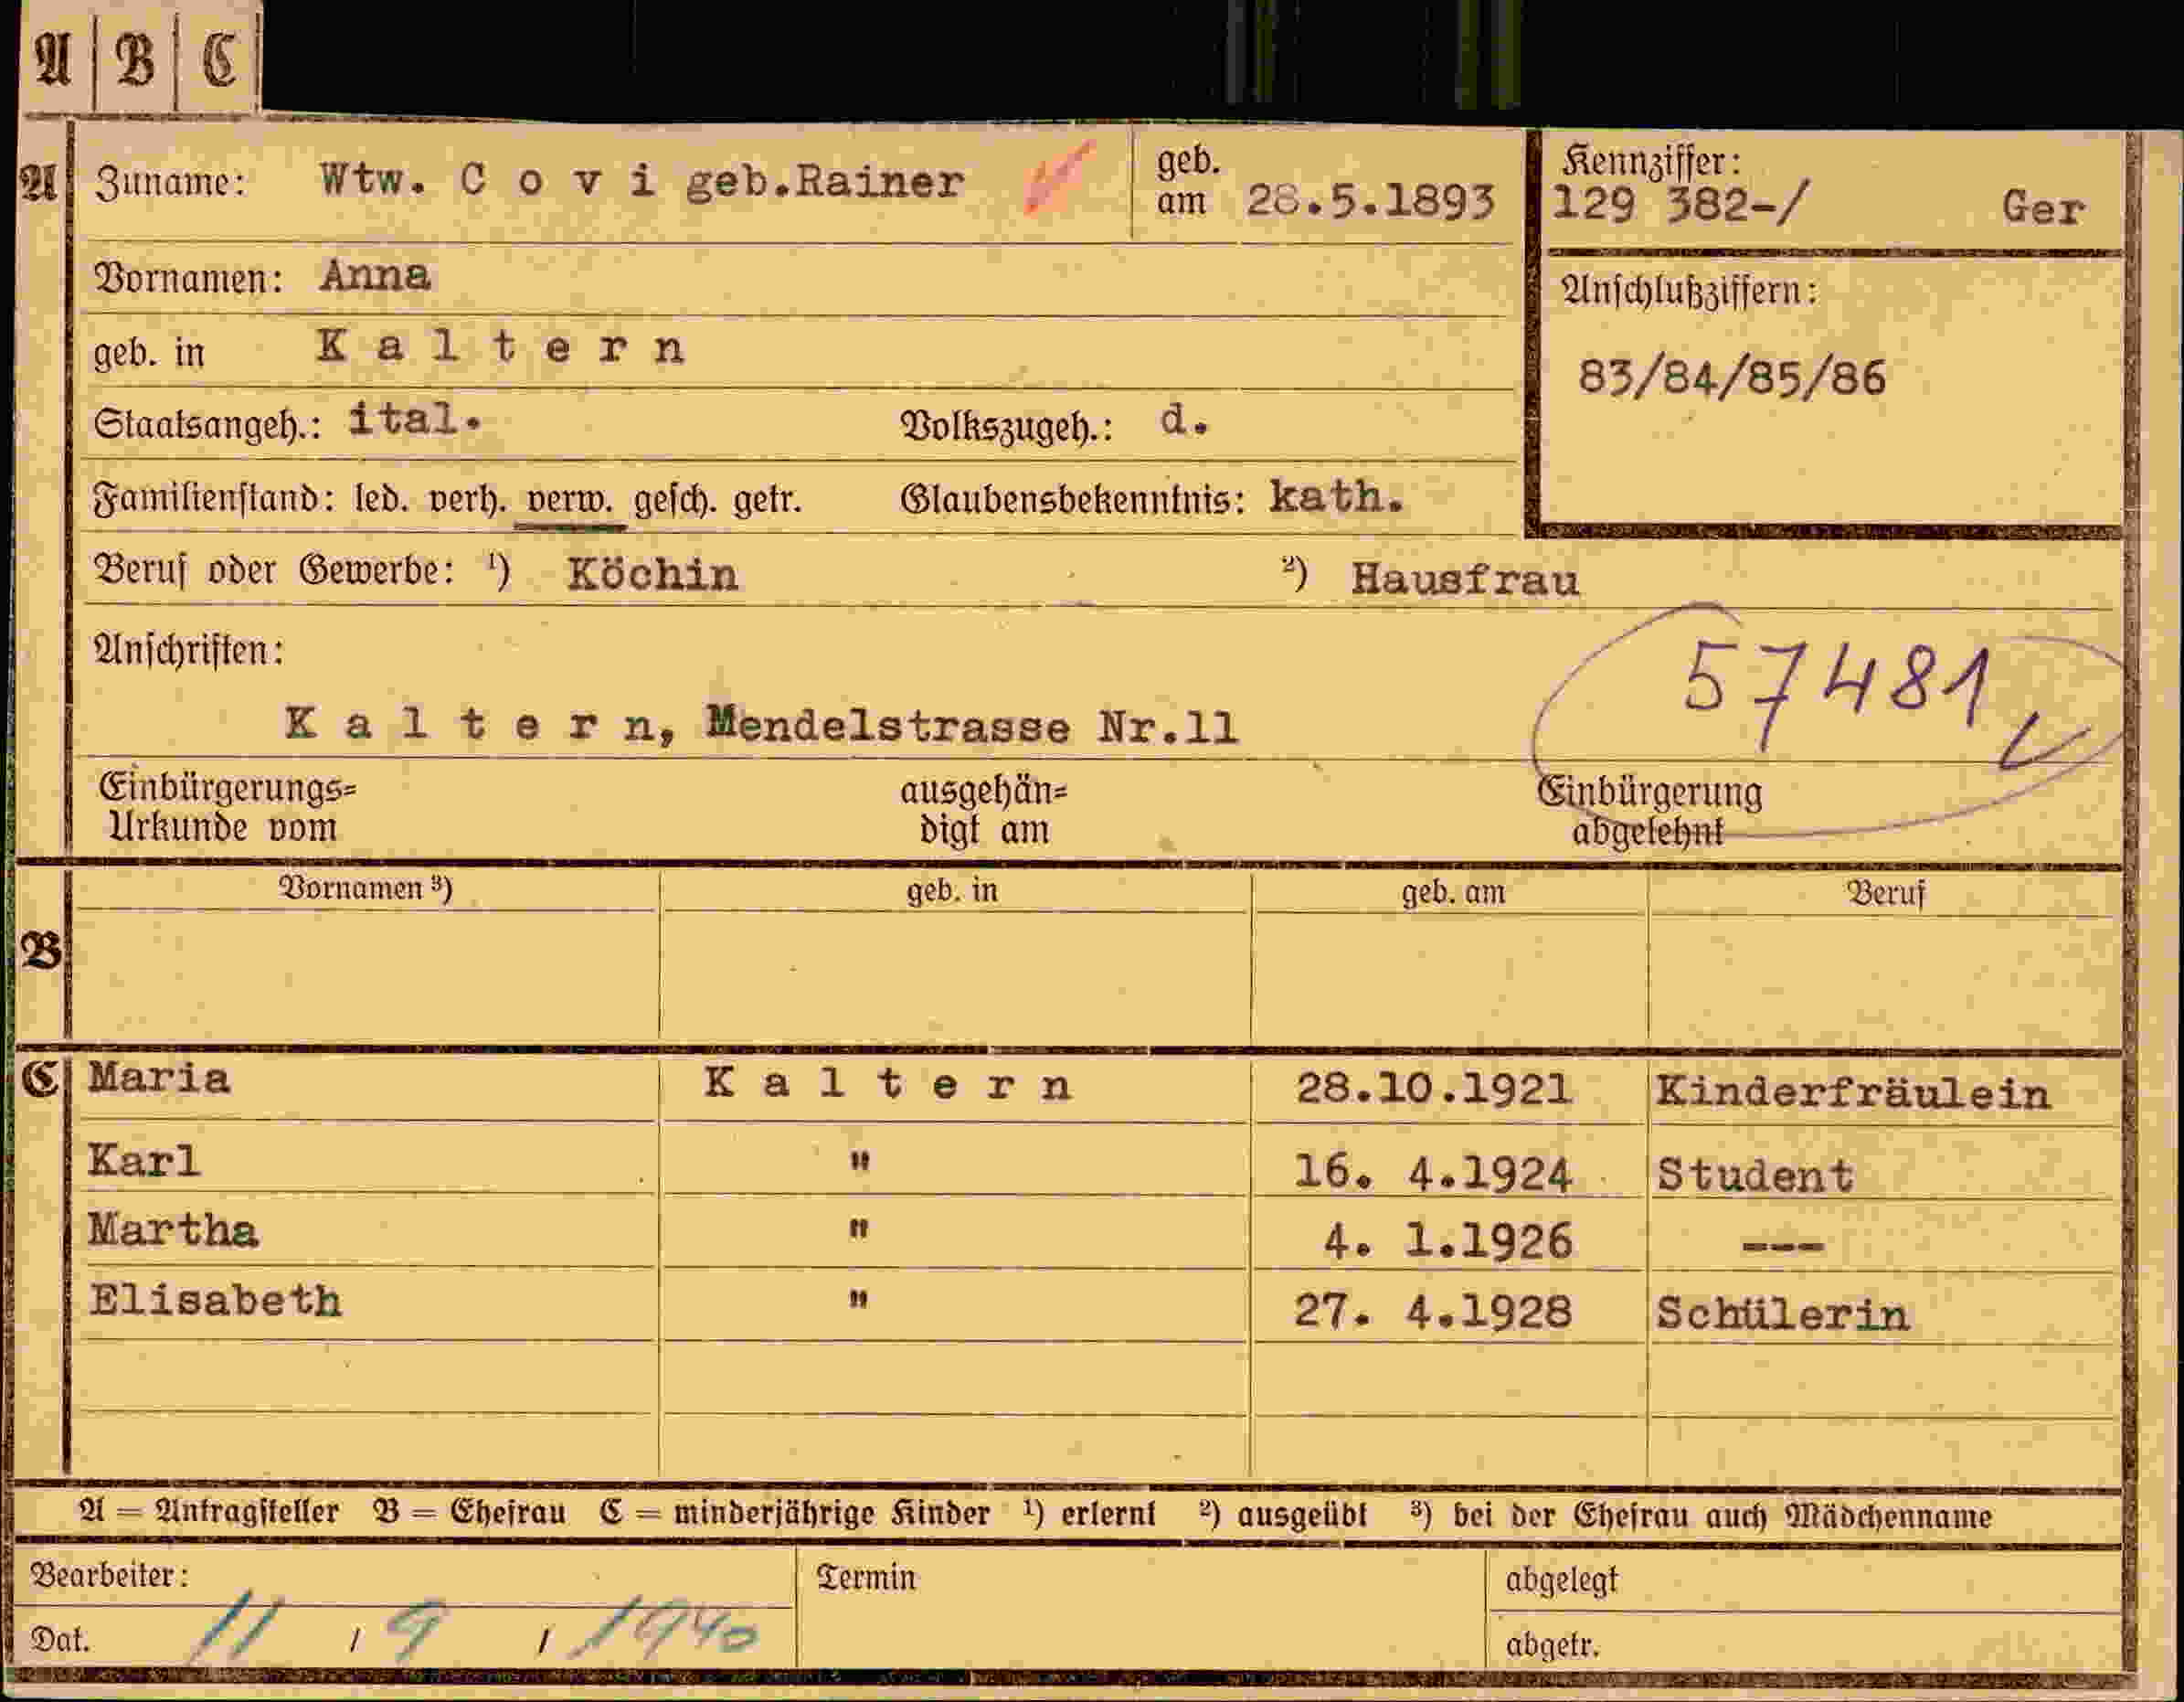 A B C
A Zuname: Wtw. C o v i geb.Rainer geb. am 28.5.1893 Kennziffer: 129 382-/ Ger
Vornamen: Anna
Anschlußziffern:
geb. in K a l t e r n
83/84/85/86
Staatsangeh.: ital. Volkszugeh.: d.
Familienstand: led. verh. verw. gesch. getr. Glaubensbekenntnis: kath.
Beruf oder Gewerbe: ¹) Köchin ²) Hausfrau
Anschriften:
57481
K a l t e r n, Mendelstrasse Nr.11
Einbürgerungs= ausgehän= Einbürgerung
Urkunde vom digt am abgelehnt
Vornamen ³) geb. in geb. am Beruf
B
C Maria K a l t e r n 28.10.1921 Kinderfräulein
Karl " 16. 4.1924 Student
Martha " 4. 1.1926 ---
Elisabeth " 27. 4.1928 Schülerin
A = Antragsteller B = Ehefrau C = minderjährige Kinder ¹) erlernt ²) ausgeübt ³) bei der Ehefrau auch Mädchenname
Bearbeiter: Termin abgelegt
Dat. 11 / 9 / 1940 abgetr.